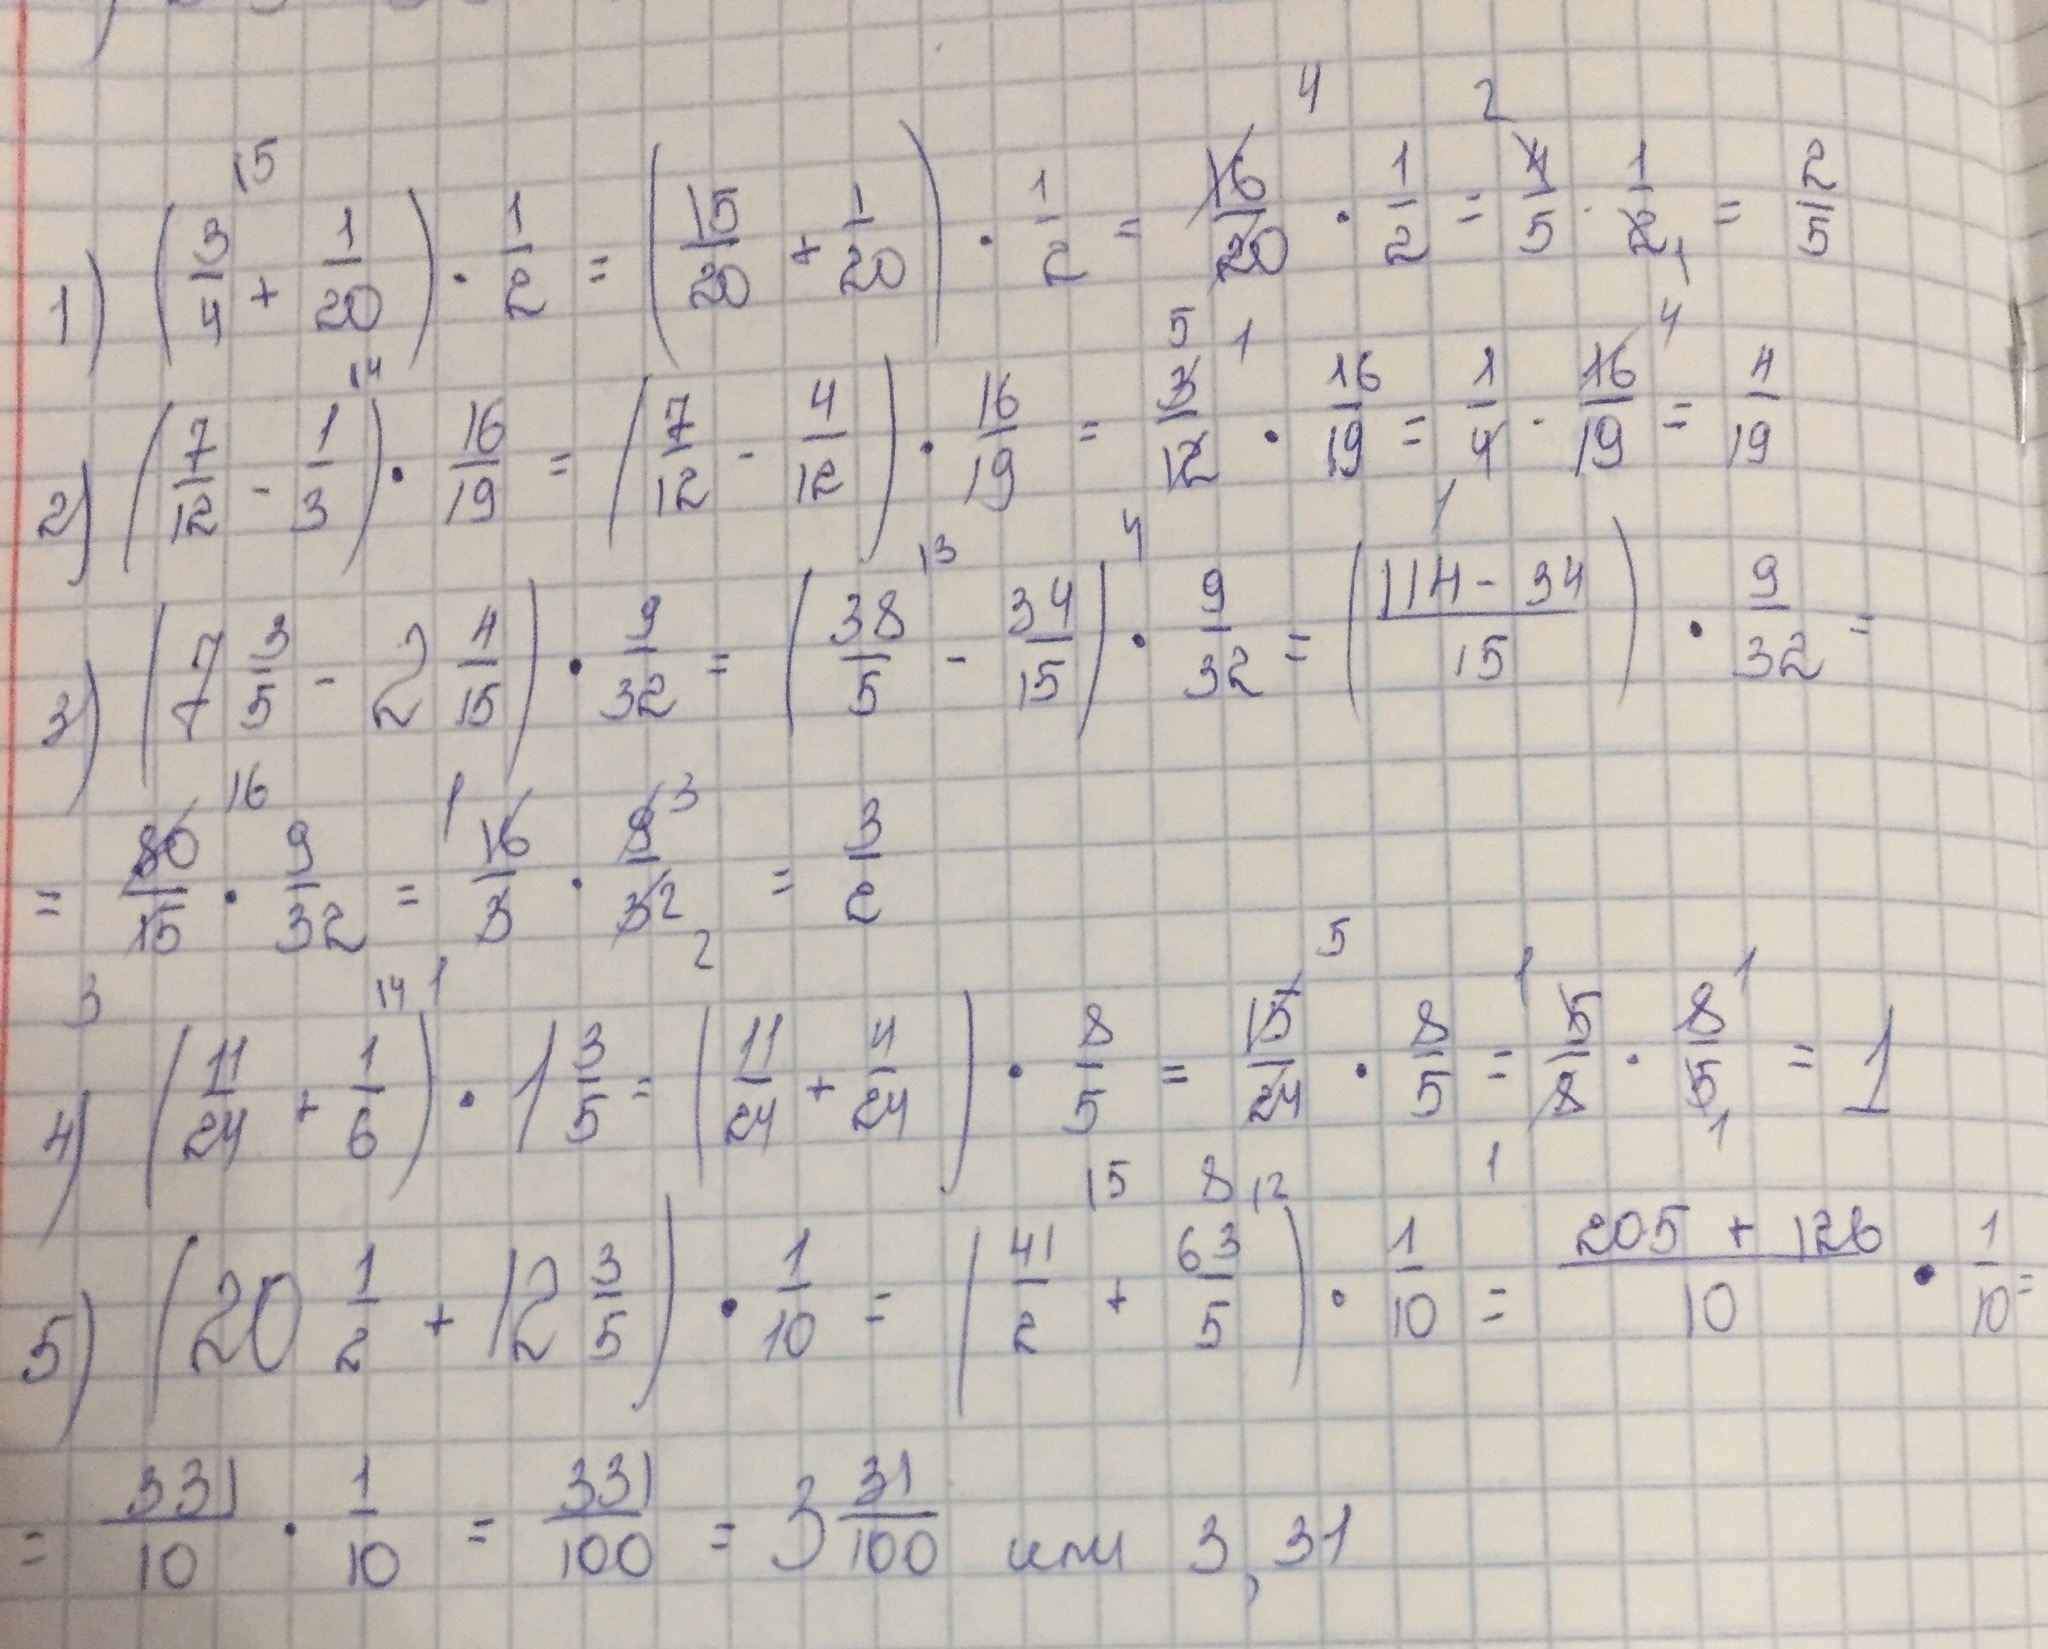 1) (3/4 + 1/20) · 1/2 = (15/20 + 1/20) · 1/2 = 16/20 · 1/2 = 4/5 · 1/2 = 2/5
2) (7/12 - 1/3) · 16/19 = (7/12 - 4/12) · 16/19 = 3/12 · 16/19 = 1/4 · 16/19 = 4/19
3) (7 3/5 - 2 4/15) · 9/32 = (38/5 - 34/15) · 9/32 = ((114 - 34)/15) · 9/32 =
= 80/15 · 9/32 = 16/3 · 9/32 = 3/2
4) (11/24 + 1/6) · 1 3/5 = (11/24 + 4/24) · 8/5 = 15/24 · 8/5 = 5/8 · 8/5 = 1
5) (20 1/2 + 12 3/5) · 1/10 = (41/2 + 63/5) · 1/10 = (205 + 126)/10 · 1/10 =
= 331/10 · 1/10 = 331/100 = 3 31/100 или 3,31